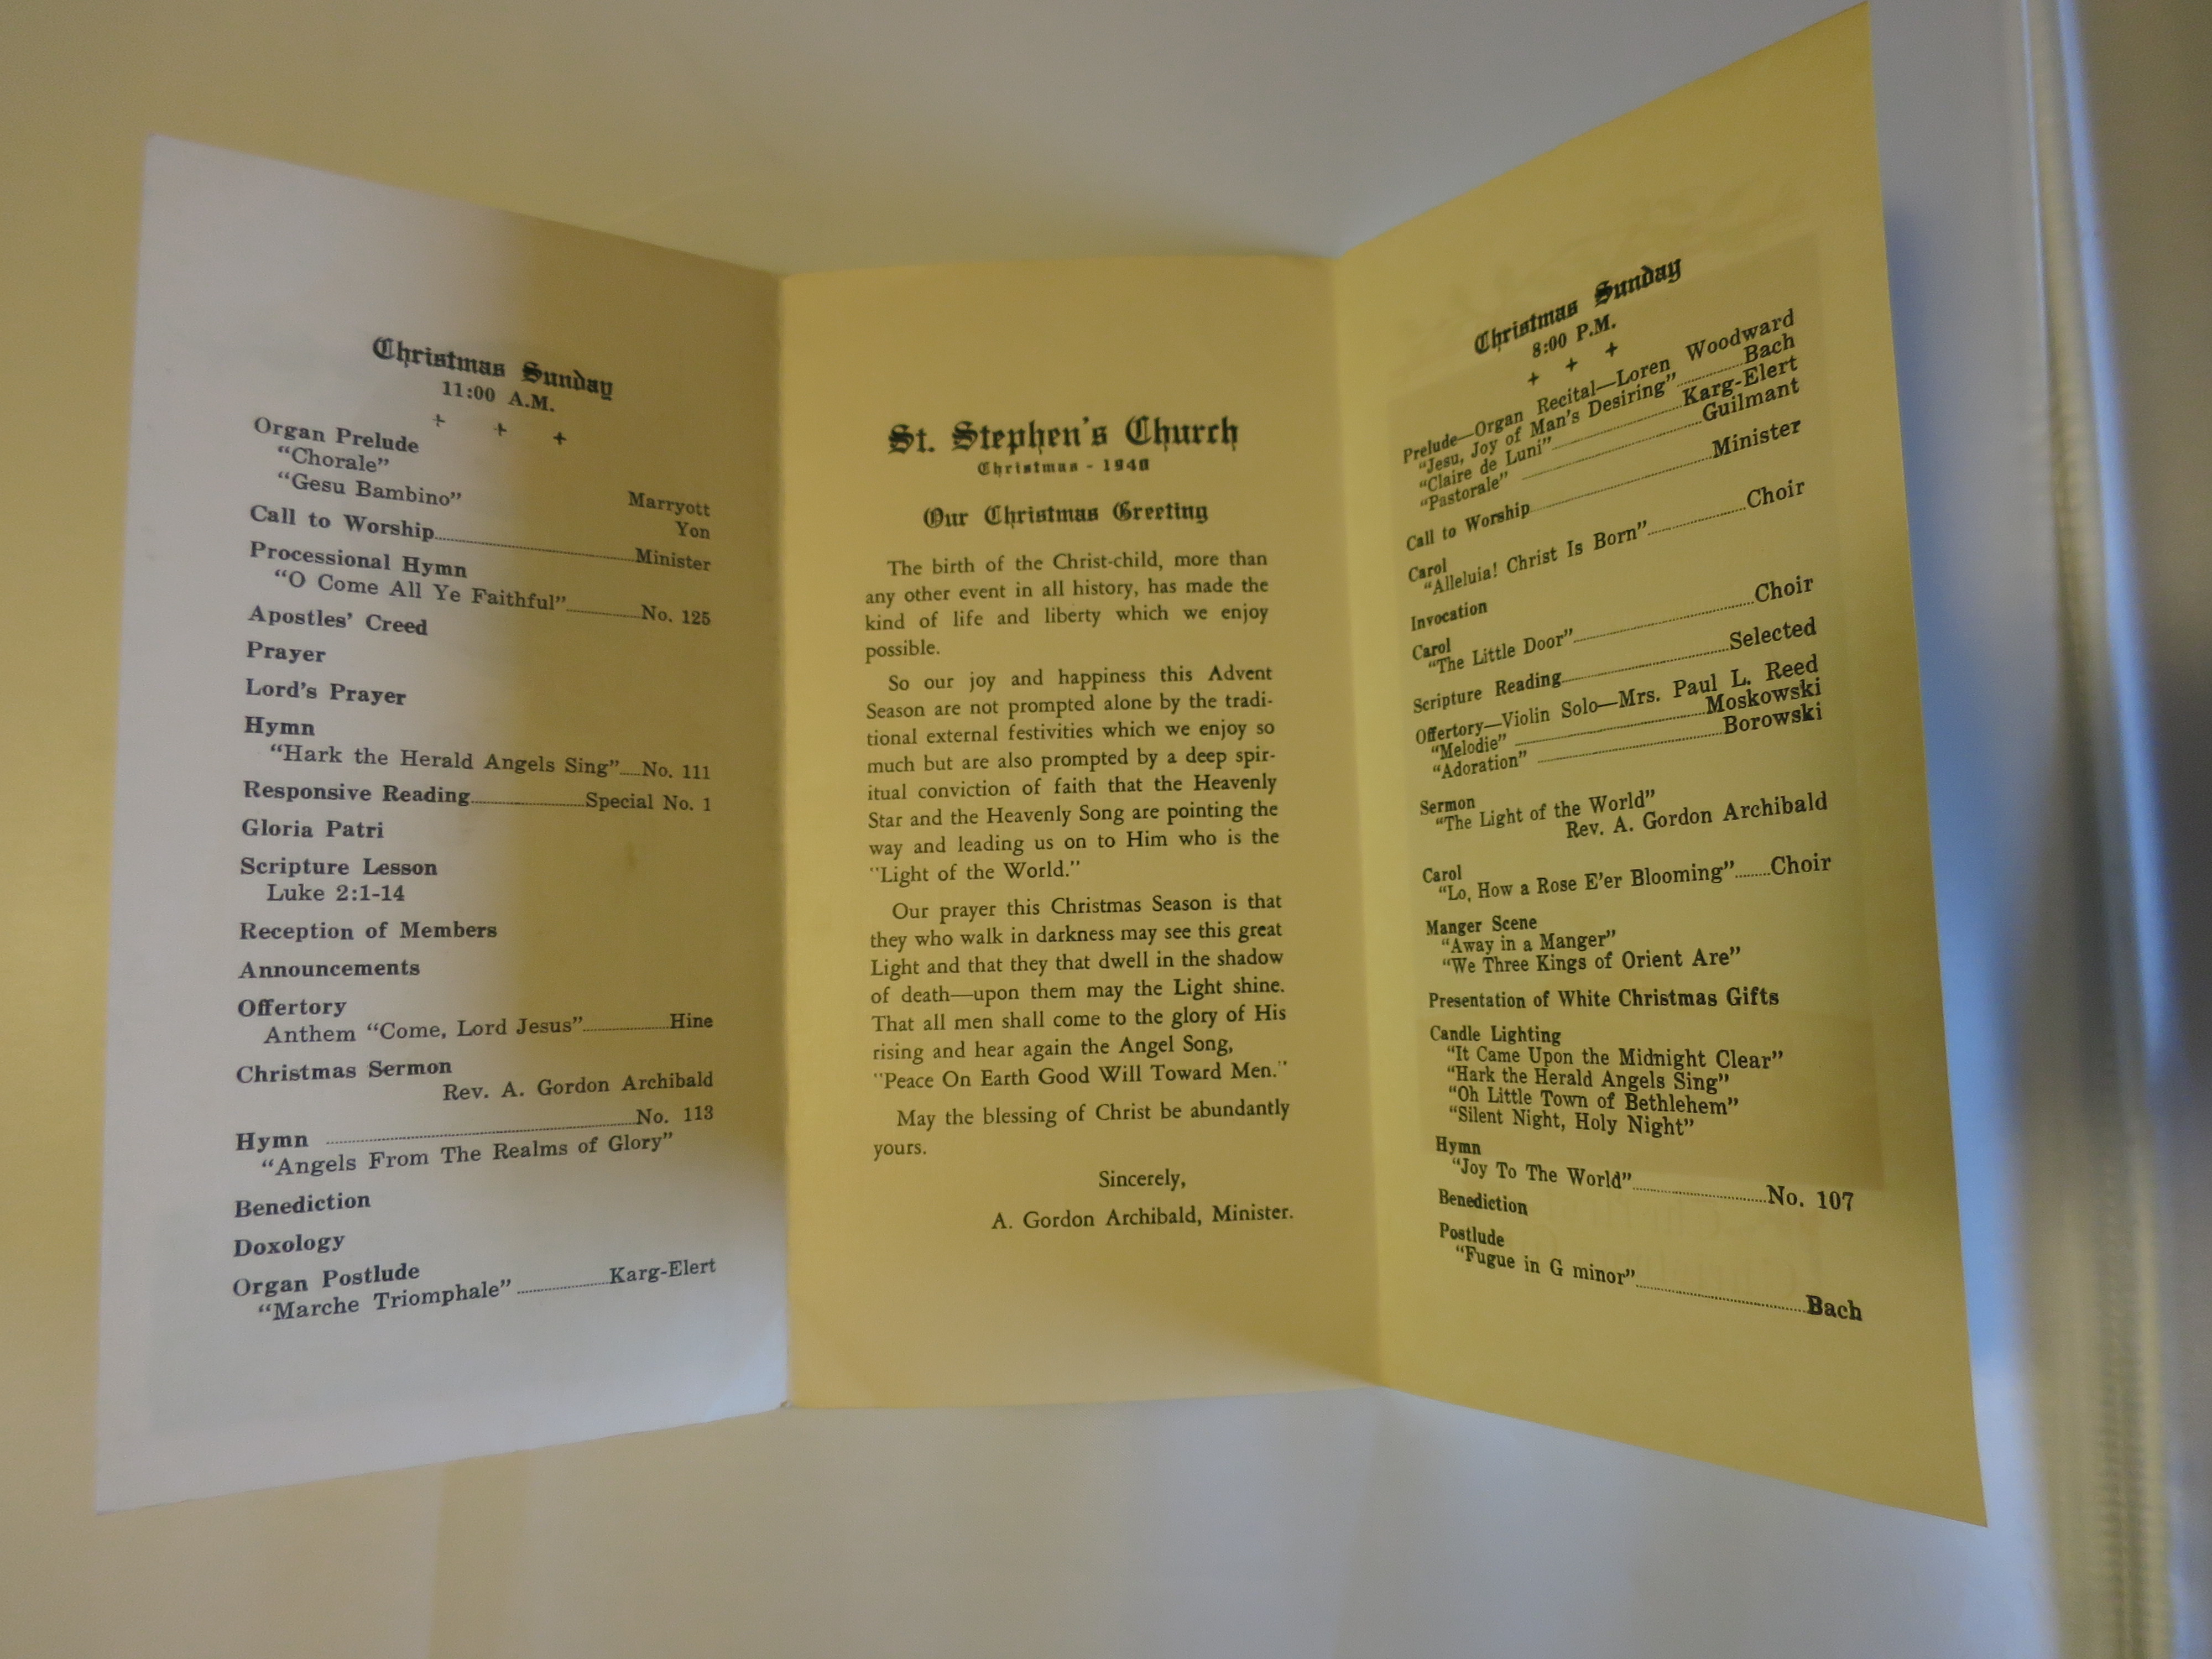 Christmas Sunday
11:00 A.M.
+ + +
Organ Prelude
“Chorale” Marryott
“Gesu Bambino” Yon
Call to Worship Minister
Processional Hymn
“O Come All Ye Faithful” No. 125
Apostles' Creed
Prayer
Lord's Prayer
Hymn
“Hark the Herald Angels Sing” No. 111
Responsive Reading Special No. 1
Gloria Patri
Scripture Lesson
Luke 2:1-14
Reception of Members
Announcements
Offertory
Anthem “Come, Lord Jesus” Hine
Christmas Sermon
Rev. A. Gordon Archibald
Hymn No. 113
“Angels From The Realms of Glory”
Benediction
Doxology
Organ Postlude
“Marche Triomphale” Karg-Elert
St. Stephen's Church
Christmas - 1940
Our Christmas Greeting
The birth of the Christ-child, more than
any other event in all history, has made the
kind of life and liberty which we enjoy
possible.
So our joy and happiness this Advent
Season are not prompted alone by the tradi-
tional external festivities which we enjoy so
much but are also prompted by a deep spir-
itual conviction of faith that the Heavenly
Star and the Heavenly Song are pointing the
way and leading us on to Him who is the
"Light of the World."
Our prayer this Christmas Season is that
they who walk in darkness may see this great
Light and that they that dwell in the shadow
of death—upon them may the Light shine.
That all men shall come to the glory of His
rising and hear again the Angel Song,
"Peace On Earth Good Will Toward Men."
May the blessing of Christ be abundantly
yours.
Sincerely,
A. Gordon Archibald, Minister.
Christmas Sunday
8:00 P.M.
+ + +
Prelude—Organ Recital—Loren Woodward
“Jesu, Joy of Man's Desiring” Bach
“Claire de Luni” Karg-Elert
“Pastorale” Guilmant
Call to Worship Minister
Carol
“Alleluia! Christ Is Born” Choir
Invocation
Carol
“The Little Door” Choir
Scripture Reading Selected
Offertory—Violin Solo—Mrs. Paul L. Reed
“Melodie” Moskowski
“Adoration” Borowski
Sermon
“The Light of the World”
Rev. A. Gordon Archibald
Carol
“Lo, How a Rose E'er Blooming” Choir
Manger Scene
“Away in a Manger”
“We Three Kings of Orient Are”
Presentation of White Christmas Gifts
Candle Lighting
“It Came Upon the Midnight Clear”
“Hark the Herald Angels Sing”
“Oh Little Town of Bethlehem”
“Silent Night, Holy Night”
Hymn
“Joy To The World” No. 107
Benediction
Postlude
“Fugue in G minor” Bach